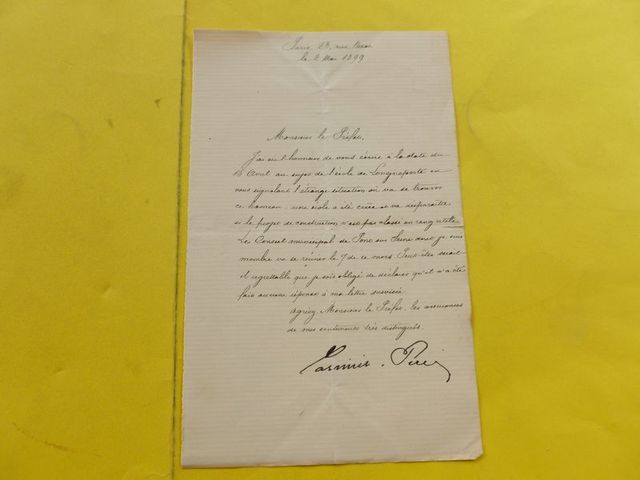 Paris, 23, rue Nitot
le 2 Mai 1899
Monsieur le Préfet,
J'ai eu l'honneur de vous écrire à la date du
Avril au sujet de l'école de Longueperte en
vous signalant l'étrange situation où va se trouver
ce hameau : une école a été créée et va disparaître
si le projet de construction n'est pas classé en rang utile.
Le Conseil municipal de Pont sur Seine dont je suis
membre va se réunir le 7 de ce mois. Peut-être serait-
il regrettable que je sois obligé de déclarer qu'il n'a été
fait aucune réponse à ma lettre susvisée.
Agréez, Monsieur le Préfet, les assurances
de mes sentiments très distingués.
Casimir-Perier